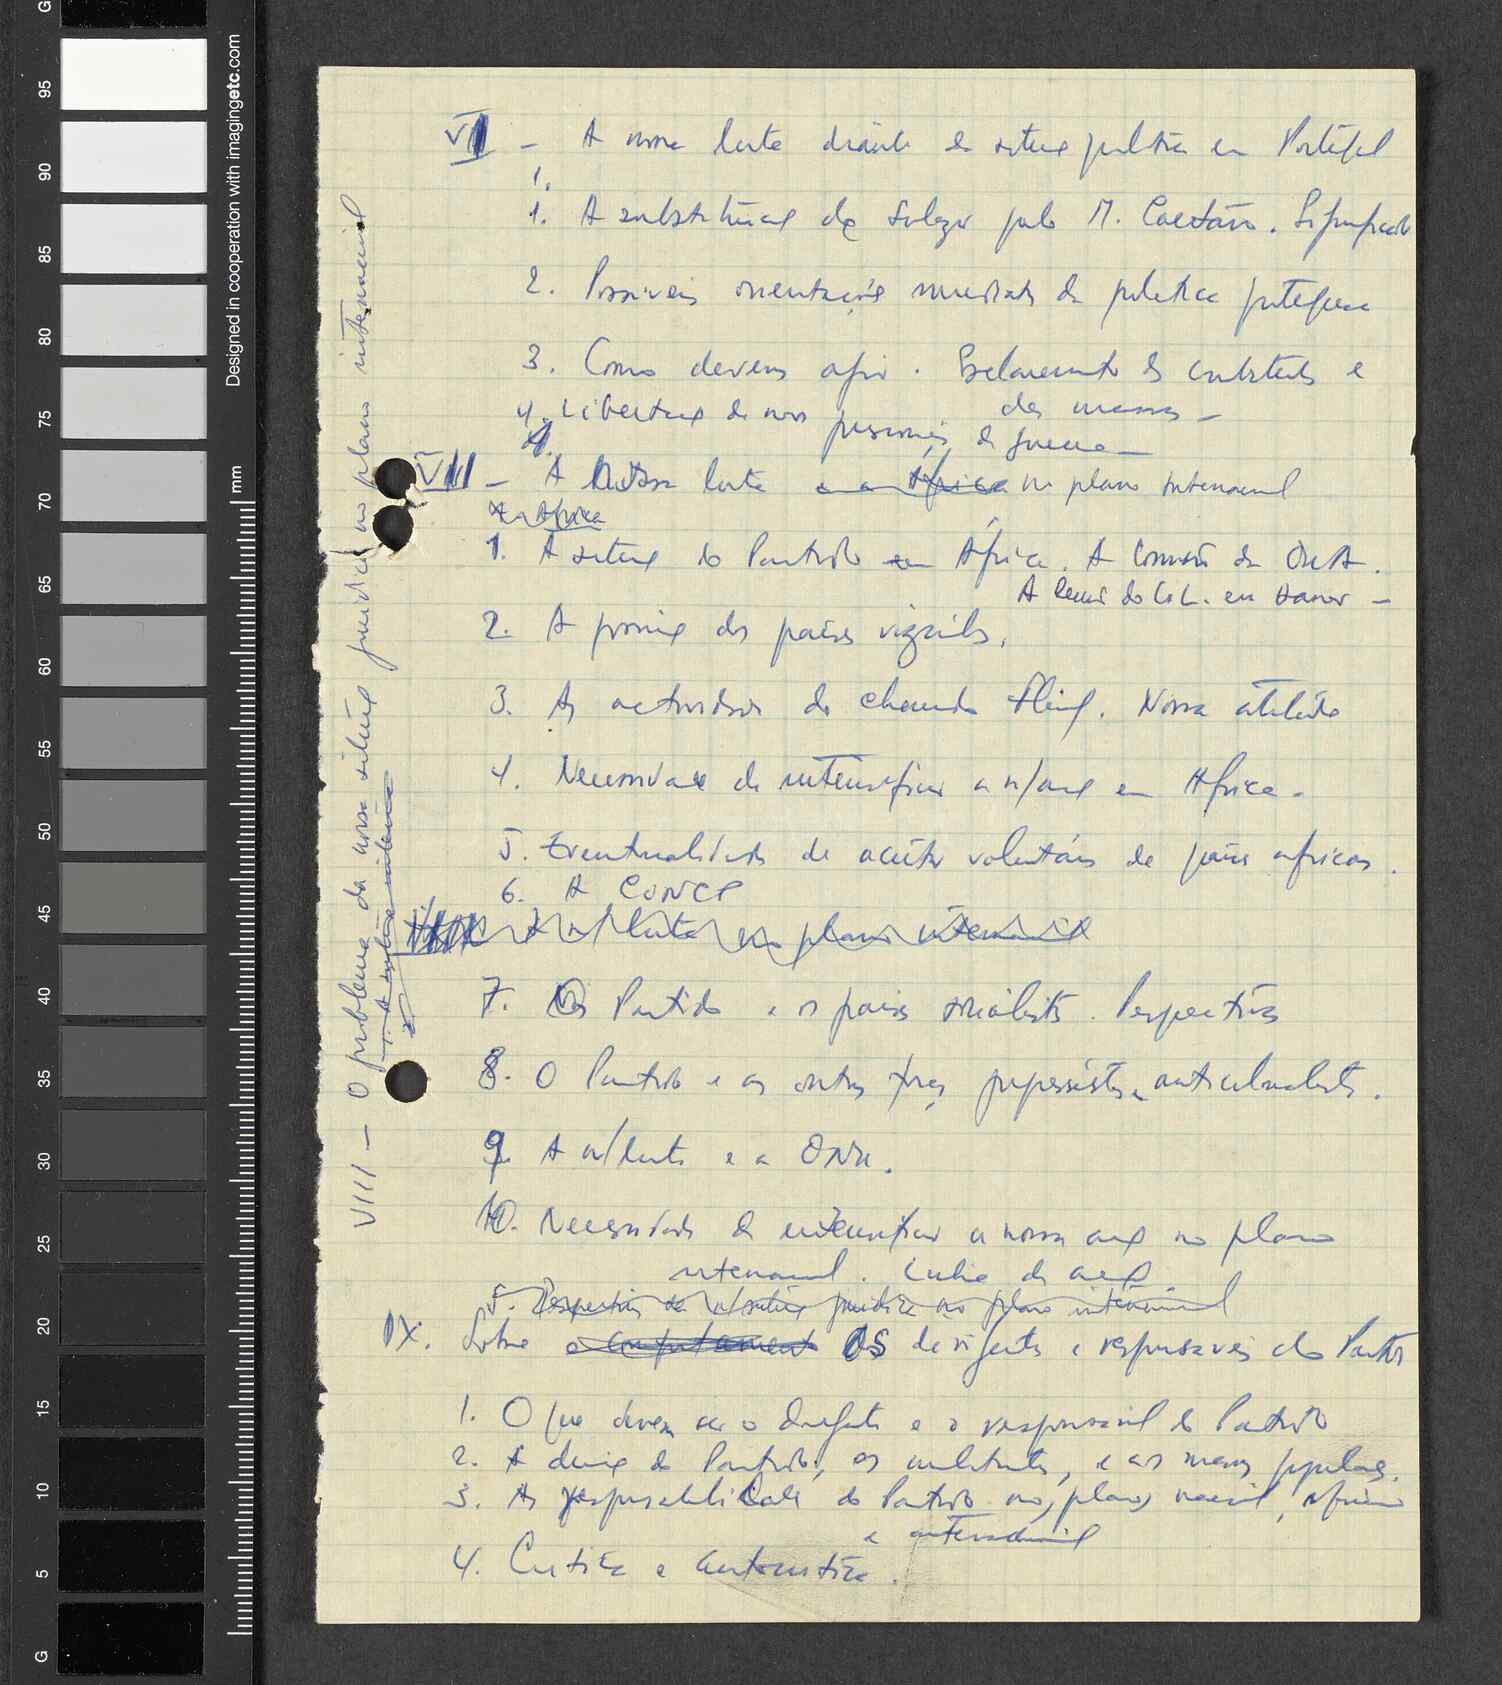 VI - A nossa luta diante da situação política em Portugal
1.
1. A substituição de Salazar pelo M. Caetano. Significado
2. Possíveis orientações imediatas da política portuguesa
3. Como devemos agir. Esclarecimento dos combatentes e
das massas -
4. Libertação de nossos prisioneiros de guerra -
VII - A Nossa luta em África no plano internacional
Em África
1. A situação do Partido em África. A Comissão da OUA.
A reunião do C.L. em
2. A posição dos países vizinhos.
3. As actividades do chamado Fling. Nossa atitude
4. Necessidade de intensificar a n/acção em África.
5. Eventualidade de aceitar voluntários de países africanos.
6. A CONCP
A n/ luta no plano internacional
7. O Partido e os países socialistas. Perspectivas
8. O Partido e as outras forças progressistas e anticolonialistas.
9. A n/luta e a ONU.
10. Necessidade de intensificar a nossa acção no plano
internacional. Linha de acção.
5. Perspectivas da n/ situação jurídica no plano internacional
IX. Sobre o comportamento OS dirigentes e responsáveis do Partido
1. O que devem ser o dirigente e o responsável do Partido
2. A direcção do Partido, os militantes, e as massas populares.
3. As responsabilidades do Partido nos planos nacional, africano
e internacional
4. Crítica e autocrítica.
VIII - O problema da nossa situação jurídica no plano internacional
1. A
Designed in cooperation with imagingetc.com
mm
G 95 90 85 80 75 70 65 60 55 50 45 40 35 30 25 20 15 10 5 G